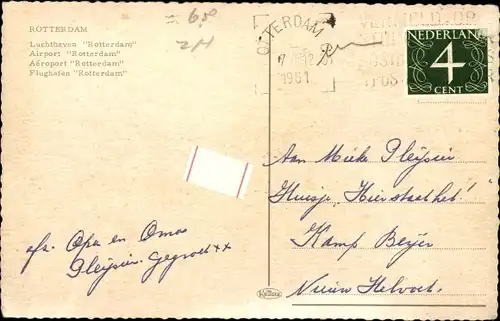 ROTTERDAM
Luchthaven "Rotterdam"
Airport "Rotterdam"
Aéroport "Rotterdam"
Flughafen "Rotterdam"
= 6,50
2H
ROTTERDAM
1961
NEDERLAND
4
CENT
Aan Mieke Pleijsier
Huisje "Hierstaathet!
Kamp Beijer
Nieuw Helvoet.
afz. Opa en Oma
Pleijsier. Gegroet xx